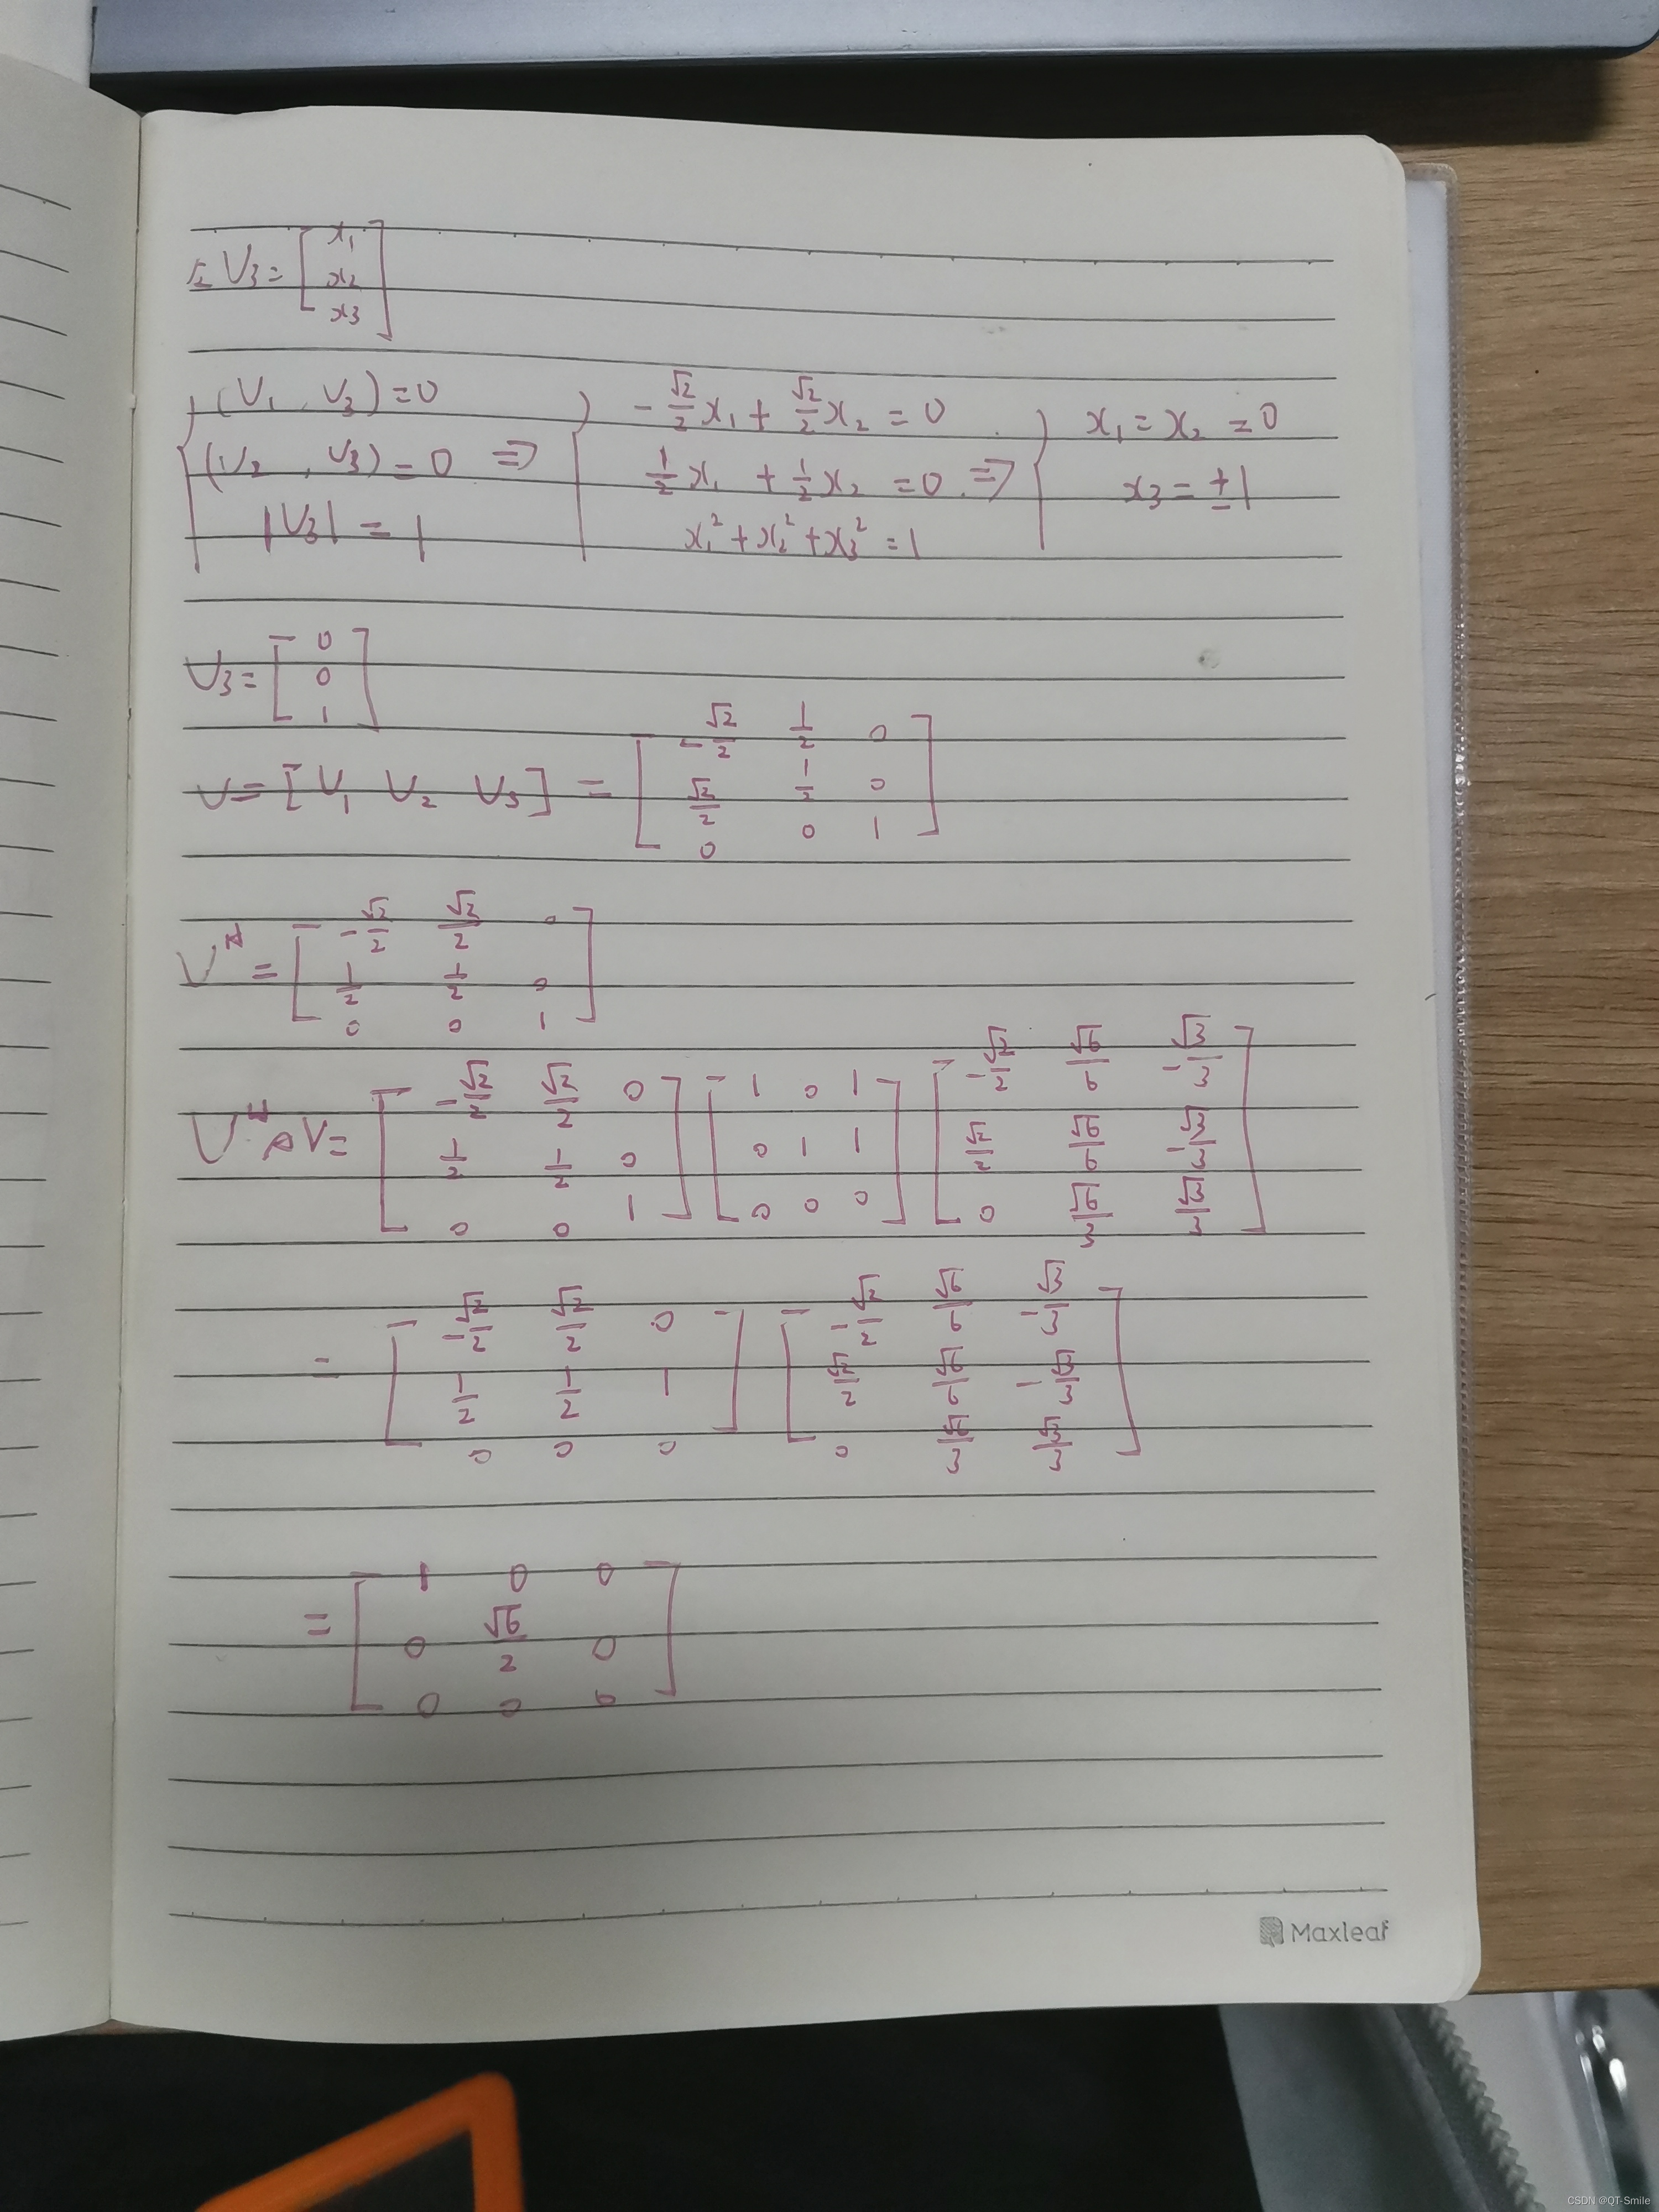 U₃ = [x₁; x₂; x₃]
{ (U₁, U₃) = 0; (U₂, U₃) = 0; |U₃| = 1 ⇒ { -√2/2 x₁ + √2/2 x₂ = 0; 1/2 x₁ + 1/2 x₂ = 0; x₁² + x₂² + x₃² = 1 ⇒ { x₁ = x₂ = 0; x₃ = ±1
U₃ = [0; 0; 1]
U = [U₁ U₂ U₃] = [-√2/2 1/2 0; √2/2 1/2 0; 0 0 1]
Uᴴ = [-√2/2 √2/2 0; 1/2 1/2 0; 0 0 1]
UᴴAV = [-√2/2 √2/2 0; 1/2 1/2 0; 0 0 1] [1 0 1; 0 1 1; 0 0 0] [-√2/2 √6/6 -√3/3; √2/2 √6/6 -√3/3; 0 √6/3 √3/3]
= [-√2/2 √2/2 0; 1/2 1/2 1; 0 0 0] [-√2/2 √6/6 -√3/3; √2/2 √6/6 -√3/3; 0 √6/3 √3/3]
= [1 0 0; 0 √6/2 0; 0 0 0]
Maxleaf
CSDN @QT-Smile